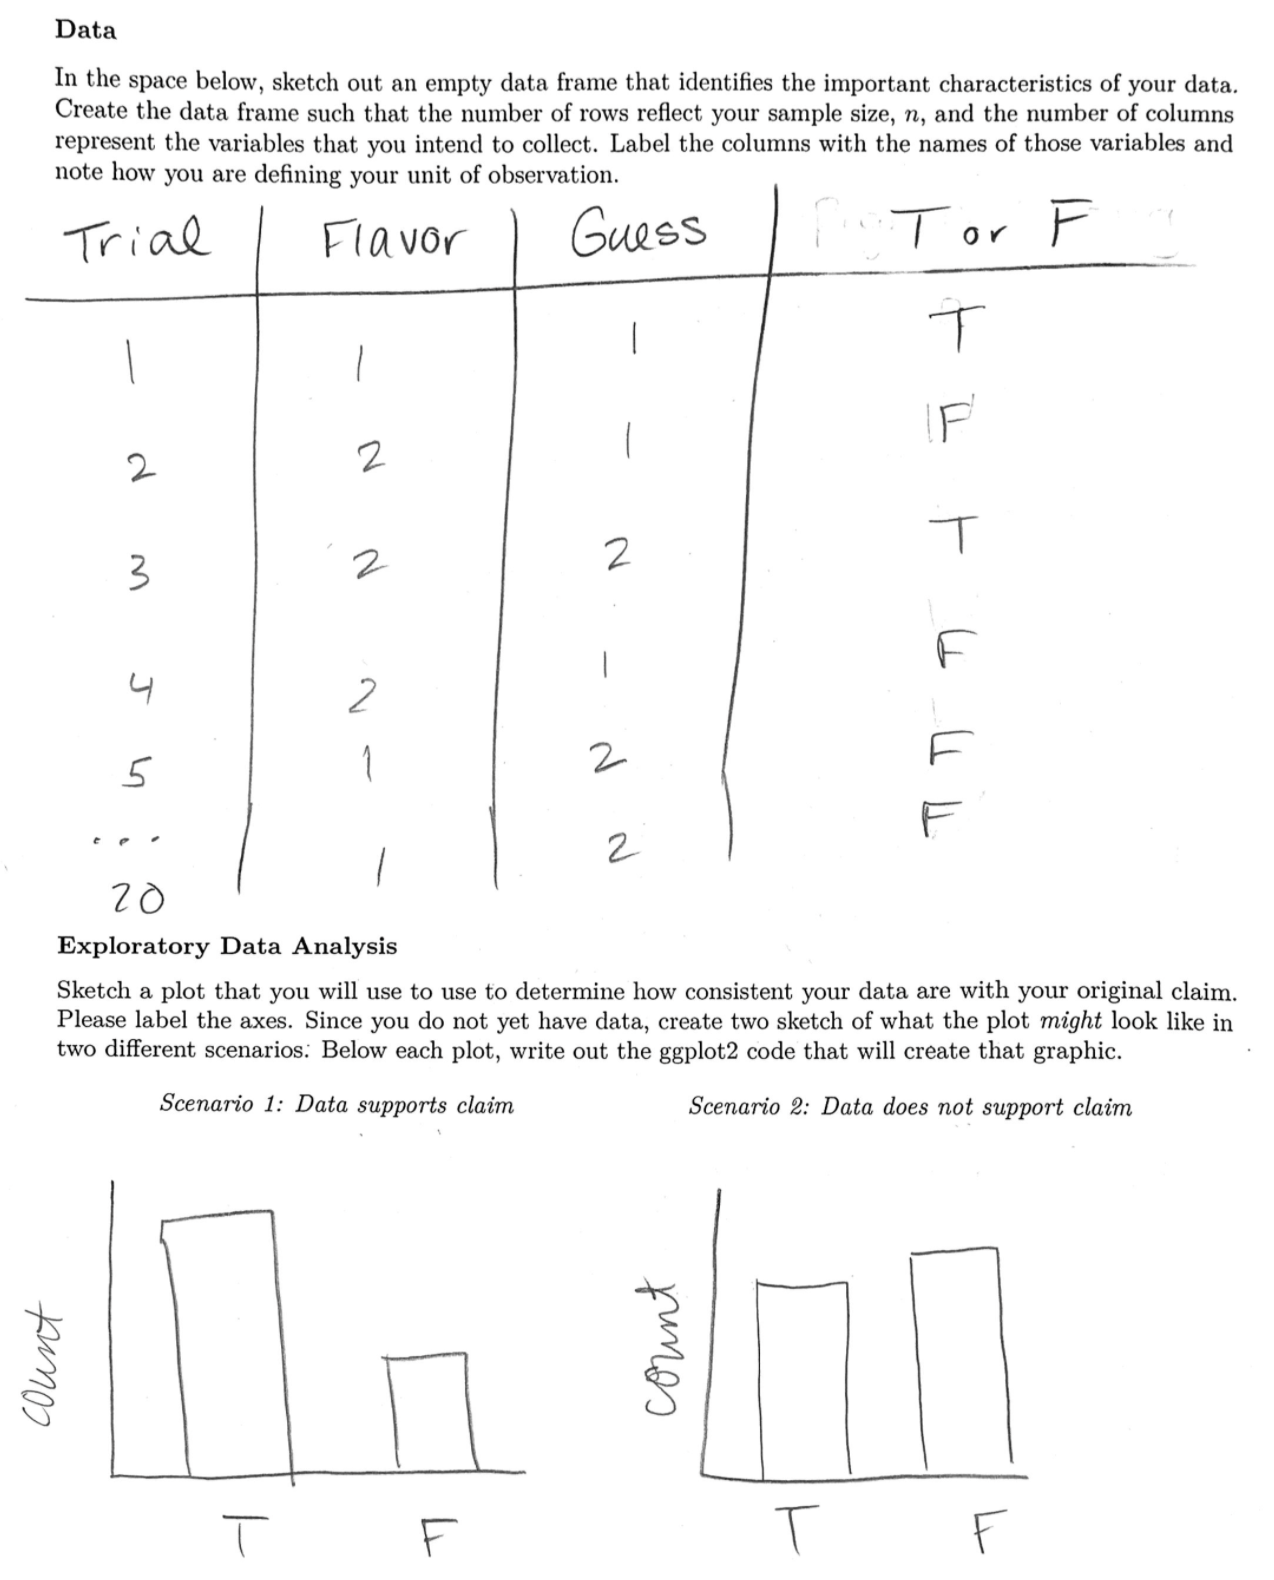 Data
In the space below, sketch out an empty data frame that identifies the important characteristics of your data.
Create the data frame such that the number of rows reflect your sample size, n, and the number of columns
represent the variables that you intend to collect. Label the columns with the names of those variables and
note how you are defining your unit of observation.
Trial Flavor Guess T or F
1 1 1 T
2 2 1 F
3 2 2 T
4 2 1 F
5 1 2 F
... 1 2 F
20
Exploratory Data Analysis
Sketch a plot that you will use to use to determine how consistent your data are with your original claim.
Please label the axes. Since you do not yet have data, create two sketch of what the plot might look like in
two different scenarios: Below each plot, write out the ggplot2 code that will create that graphic.
Scenario 1: Data supports claim Scenario 2: Data does not support claim
count count
T F T F